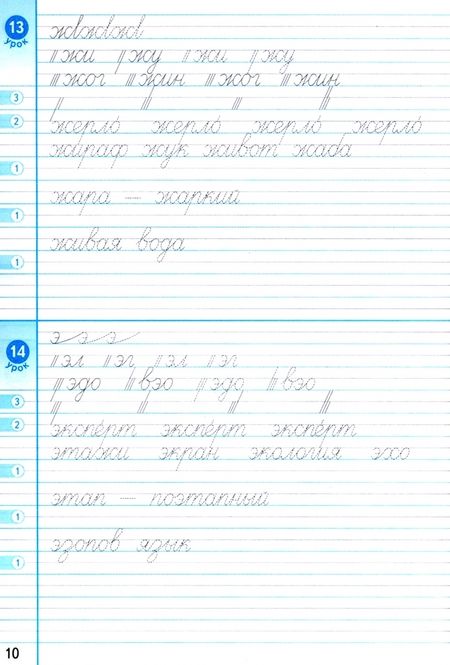 13
урок
жжжж
жи жу жи жу
жог жин жог жин
3
2
жерло́ жерло́ жерло́ жерло́
жираф жук живот жаба
1
жара – жаркий
1
живая вода
1
14
урок
э э э
эл эг эл эг
эдо вэо эдо вэо
3
2
экспе́рт экспе́рт экспе́рт
этажи экран экология эхо
1
этап – поэтапный
1
эзопов язык
1
10